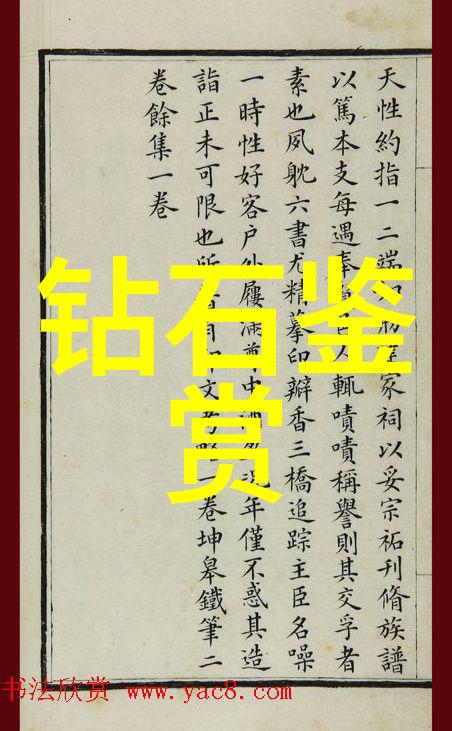 钻石鉴
赏
天性約指一二端家祠以妥宗祏刊脩族譜
以篤本支每遇奉人輒嘖嘖稱譽則其交孚者
素也夙躭六書尤精摹印瓣香三橋追踪主臣名噪
一時性好客户外屨滿尊中年僅不惑其造
詣正未可限也所印文考一卷坤皋鐵筆二
卷餘集一卷
书法欣赏 www.yac8.com